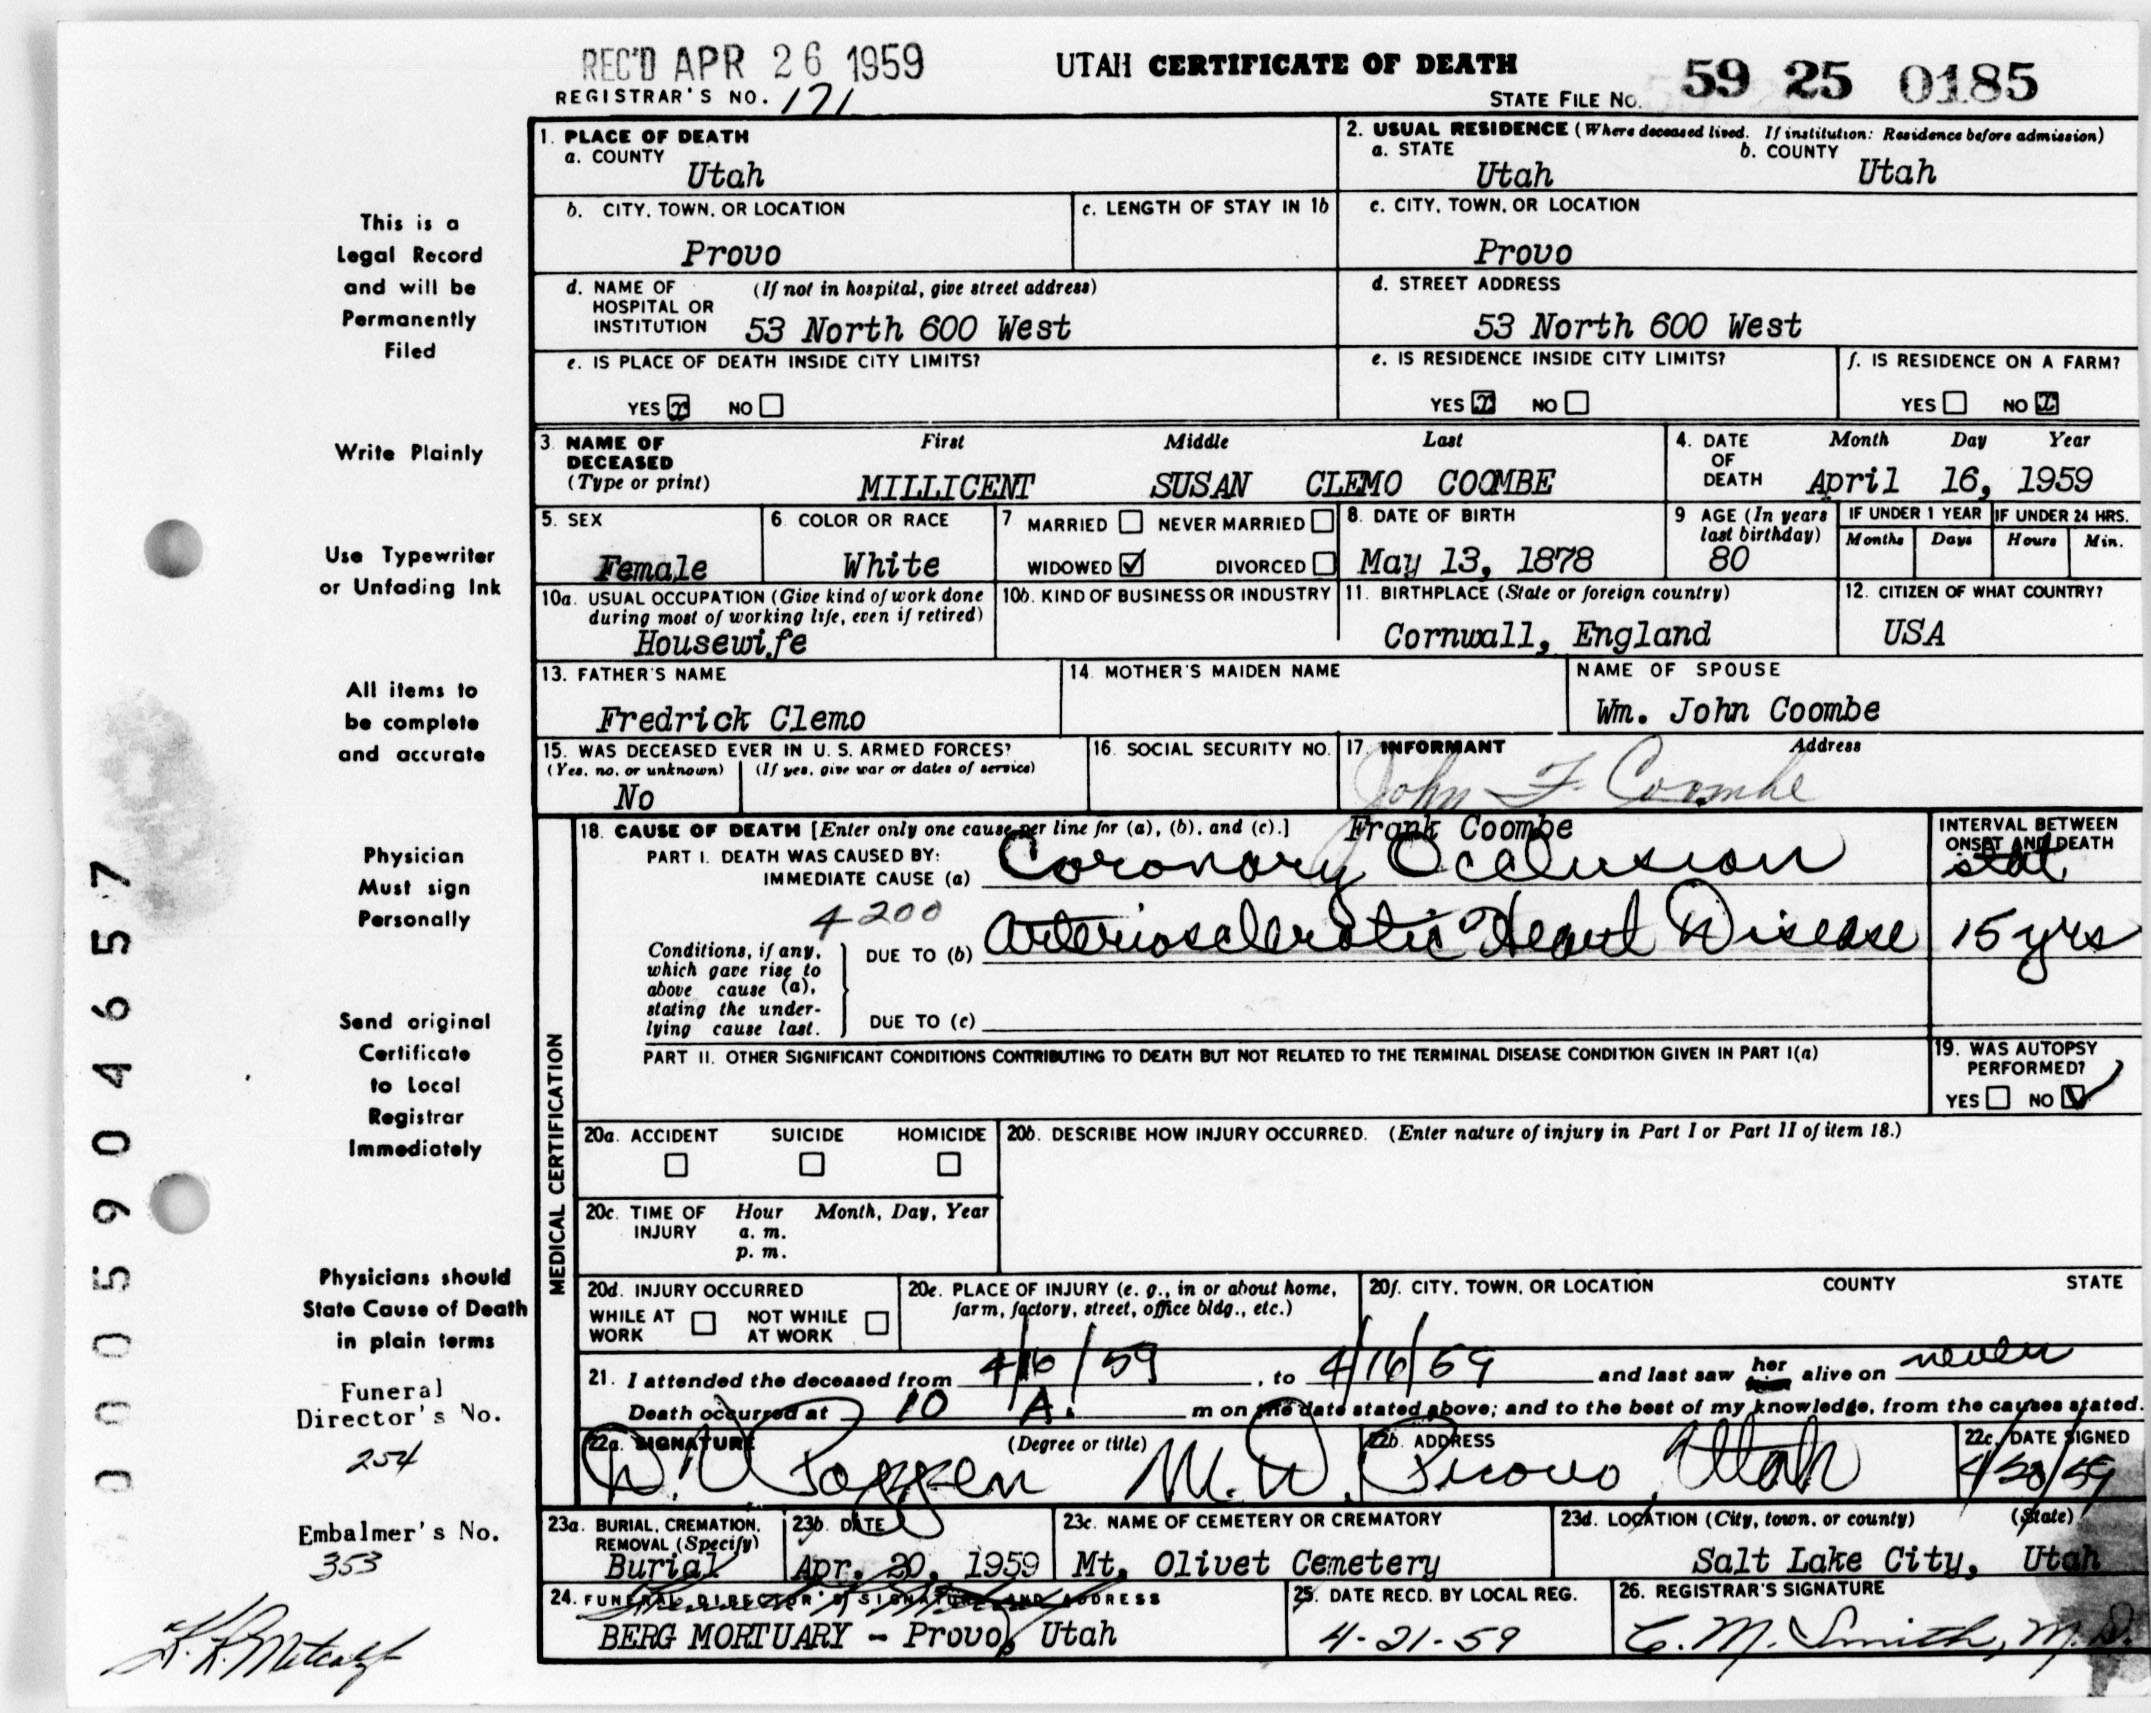 REC'D APR 26 1959
UTAH CERTIFICATE OF DEATH
59 25 0185
REGISTRAR'S NO. 171
STATE FILE NO.
1. PLACE OF DEATH
a. COUNTY
Utah
2. USUAL RESIDENCE (Where deceased lived. If institution: Residence before admission)
a. STATE
Utah
b. COUNTY
Utah
b. CITY, TOWN, OR LOCATION
Provo
c. LENGTH OF STAY IN 1b
c. CITY, TOWN, OR LOCATION
Provo
d. NAME OF HOSPITAL OR INSTITUTION
(If not in hospital, give street address)
53 North 600 West
d. STREET ADDRESS
53 North 600 West
e. IS PLACE OF DEATH INSIDE CITY LIMITS?
YES x NO
e. IS RESIDENCE INSIDE CITY LIMITS?
YES x NO
f. IS RESIDENCE ON A FARM?
YES NO x
3. NAME OF DECEASED
(Type or print)
First Middle Last
MILLICENT SUSAN CLEMO COOMBE
4. DATE OF DEATH
Month Day Year
April 16, 1959
5. SEX
Female
6. COLOR OR RACE
White
7 MARRIED NEVER MARRIED
WIDOWED ✓ DIVORCED
8. DATE OF BIRTH
May 13, 1878
9 AGE (In years last birthday)
80
IF UNDER 1 YEAR
Months Days
IF UNDER 24 HRS.
Hours Min.
10a. USUAL OCCUPATION (Give kind of work done during most of working life, even if retired)
Housewife
10b. KIND OF BUSINESS OR INDUSTRY
11. BIRTHPLACE (State or foreign country)
Cornwall, England
12. CITIZEN OF WHAT COUNTRY?
USA
13. FATHER'S NAME
Fredrick Clemo
14. MOTHER'S MAIDEN NAME
NAME OF SPOUSE
Wm. John Coombe
15. WAS DECEASED EVER IN U. S. ARMED FORCES?
(Yes, no, or unknown) (If yes, give war or dates of service)
No
16. SOCIAL SECURITY NO.
17. INFORMANT Address
John F. Coombe
Frank Coombe
MEDICAL CERTIFICATION
18. CAUSE OF DEATH [Enter only one cause per line for (a), (b), and (c).]
PART I. DEATH WAS CAUSED BY:
IMMEDIATE CAUSE (a) Coronary Occlusion
INTERVAL BETWEEN ONSET AND DEATH
stat
4200
Conditions, if any, which gave rise to above cause (a), stating the underlying cause last.
DUE TO (b) Arteriosclerotic Heart Disease
15 yrs
DUE TO (c)
PART II. OTHER SIGNIFICANT CONDITIONS CONTRIBUTING TO DEATH BUT NOT RELATED TO THE TERMINAL DISEASE CONDITION GIVEN IN PART I(a)
19. WAS AUTOPSY PERFORMED?
YES NO ✓
20a. ACCIDENT SUICIDE HOMICIDE
20b. DESCRIBE HOW INJURY OCCURRED. (Enter nature of injury in Part I or Part II of item 18.)
20c. TIME OF INJURY
Hour Month, Day, Year
a. m.
p. m.
20d. INJURY OCCURRED
WHILE AT WORK NOT WHILE AT WORK
20e. PLACE OF INJURY (e. g., in or about home, farm, factory, street, office bldg., etc.)
20f. CITY, TOWN, OR LOCATION COUNTY STATE
21. I attended the deceased from 4/16/59, to 4/16/59 and last saw her alive on never
Death occurred at 10 A. m on the date stated above; and to the best of my knowledge, from the causes stated.
22a. SIGNATURE (Degree or title)
M.D.
22b. ADDRESS
Provo, Utah
22c. DATE SIGNED
4/20/59
23a. BURIAL, CREMATION, REMOVAL (Specify)
Burial
23b. DATE
Apr. 20, 1959
23c. NAME OF CEMETERY OR CREMATORY
Mt. Olivet Cemetery
23d. LOCATION (City, town, or county) (State)
Salt Lake City, Utah
24. FUNERAL DIRECTOR'S SIGNATURE AND ADDRESS
BERG MORTUARY - Provo, Utah
25. DATE RECD. BY LOCAL REG.
4-21-59
26. REGISTRAR'S SIGNATURE
C. M. Smith, M.D.
This is a
Legal Record
and will be
Permanently
Filed
Write Plainly
Use Typewriter
or Unfading Ink
All items to
be complete
and accurate
Physician
Must sign
Personally
Send original
Certificate
to Local
Registrar
Immediately
Physicians should
State Cause of Death
in plain terms
Funeral
Director's No.
254
Embalmer's No.
353
K. R. Metcalf
000590 4657